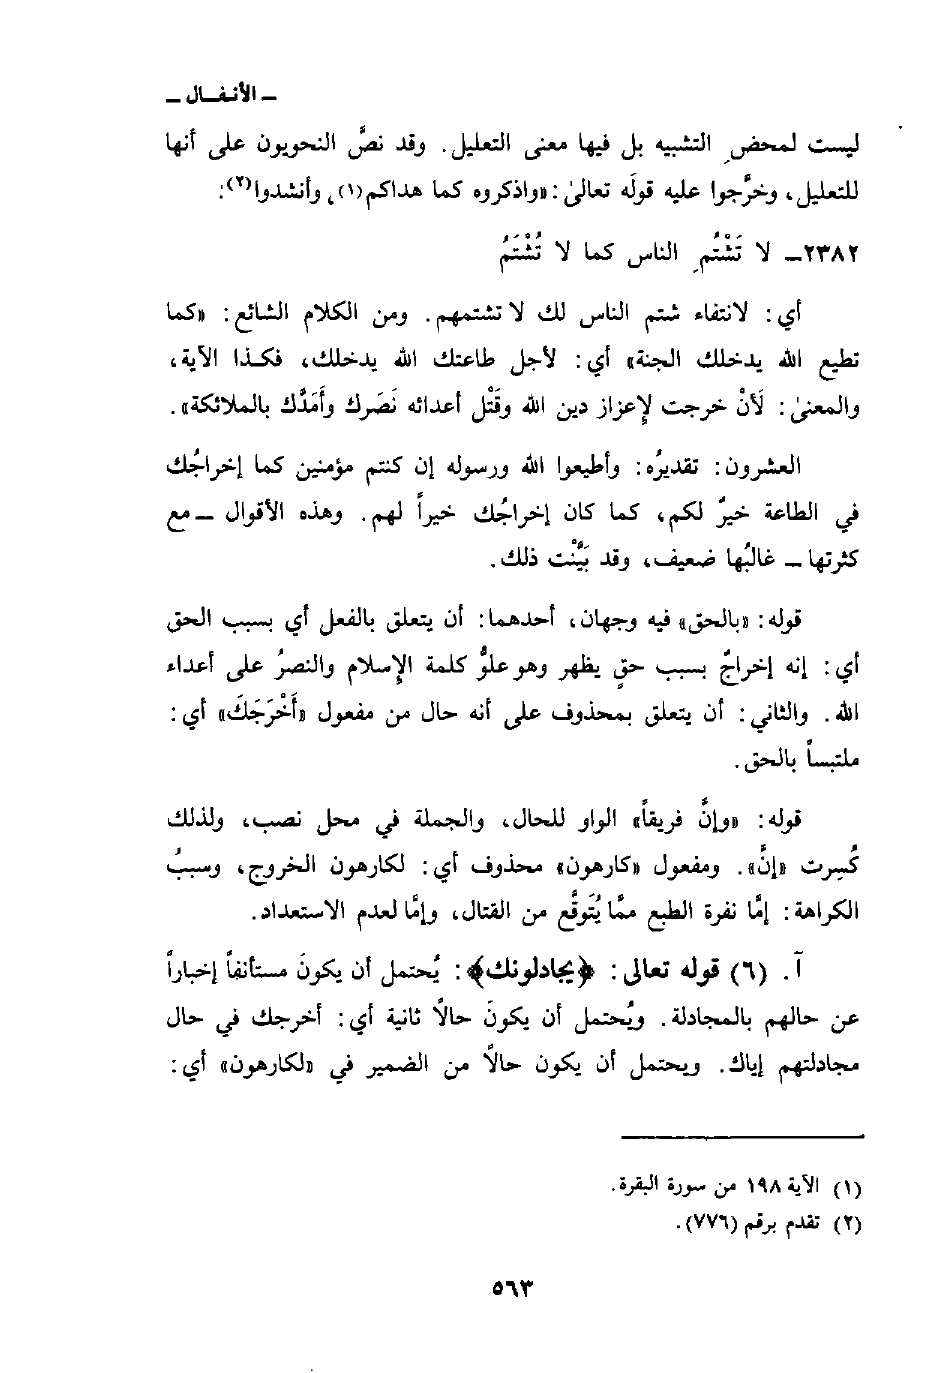 ـ الأنفـال ـ
ليست لمحضِ التشبيه بل فيها معنى التعليل. وقد نصَّ النحويون على أنها
للتعليل، وخرَّجوا عليه قولَه تعالىٰ: «واذكروه كما هداكم(١)، وأنشدوا(٢):
٢٣٨٢ـ لا تَشْتُمِ الناس كما لا تُشْتَمُ
أي: لانتفاء شتم الناس لك لا تشتمهم. ومن الكلام الشائع: «كما
تطيع الله يدخلك الجنة» أي: لأجل طاعتك الله يدخلك، فكـذا الآية،
والمعنىٰ: لَأنْ خرجت لإعزاز دين الله وقَتْل أعدائه نَصَرك وأَمَدَّك بالملائكة».
العشرون: تقديرُه: وأطيعوا الله ورسوله إن كنتم مؤمنين كما إخراجُك
في الطاعة خيرٌ لكم، كما كان إخراجُك خيراً لهم. وهذه الأقوال ــ مع
كثرتها ــ غالبُها ضعيف، وقد بَيَّنْت ذلك.
قوله: «بالحق» فيه وجهان، أحدهما: أن يتعلق بالفعل أي بسبب الحق
أي: إنه إخراجٌ بسبب حقٍ يظهر وهو علوُّ كلمة الإسلام والنصرُ على أعداء
الله. والثاني: أن يتعلق بمحذوف على أنه حال من مفعول «أَخْرَجَكَ» أي:
ملتبساً بالحق.
قوله: «وإنَّ فريقاً» الواو للحال، والجملة في محل نصب، ولذلك
كُسِرت «إنَّ». ومفعول «كارهون» محذوف أي: لكارهون الخروج، وسببُ
الكراهة: إمَّا نفرة الطبع ممَّا يُتَوقَّع من القتال، وإمَّا لعدم الاستعداد.
آ. (٦) قوله تعالى: ﴿يجادلونك﴾: يُحتمل أن يكونَ مستأنفاً إخباراً
عن حالهم بالمجادلة. ويُحتمل أن يكونَ حالًا ثانية أي: أخرجك في حال
مجادلتهم إياك. ويحتمل أن يكون حالًا من الضمير في «لكارهون» أي:
(١) الآية ١٩٨ من سورة البقرة.
(٢) تقدم برقم (٧٧٦).
٥٦٣